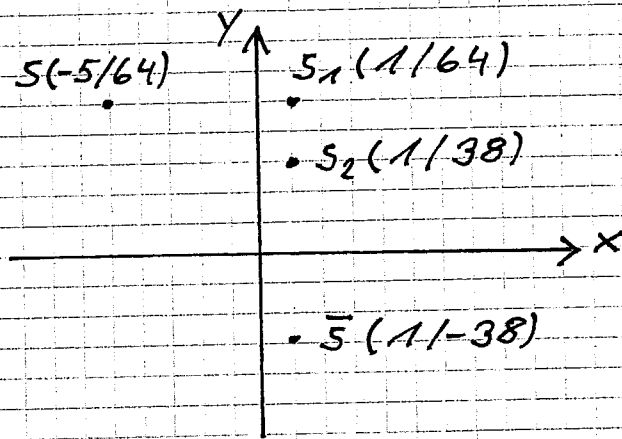 Y
S(-5/64)
S₁(1/64)
S₂(1/38)
X
S̅(1/-38)